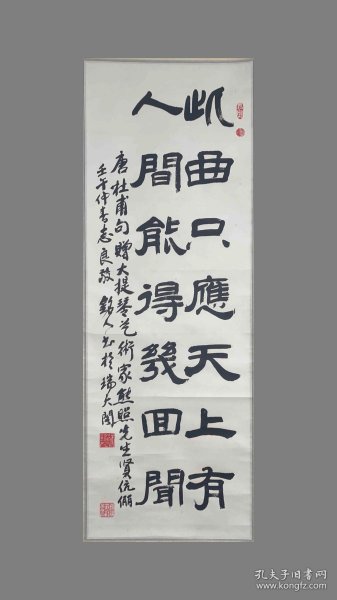 此曲只應天上有
人間能得幾回聞
唐杜甫句贈大提琴藝術家熊照先生賢伉儷
壬午仲春志良敬 銘人書於瑞大閣
孔夫子旧书网
www.kongfz.com